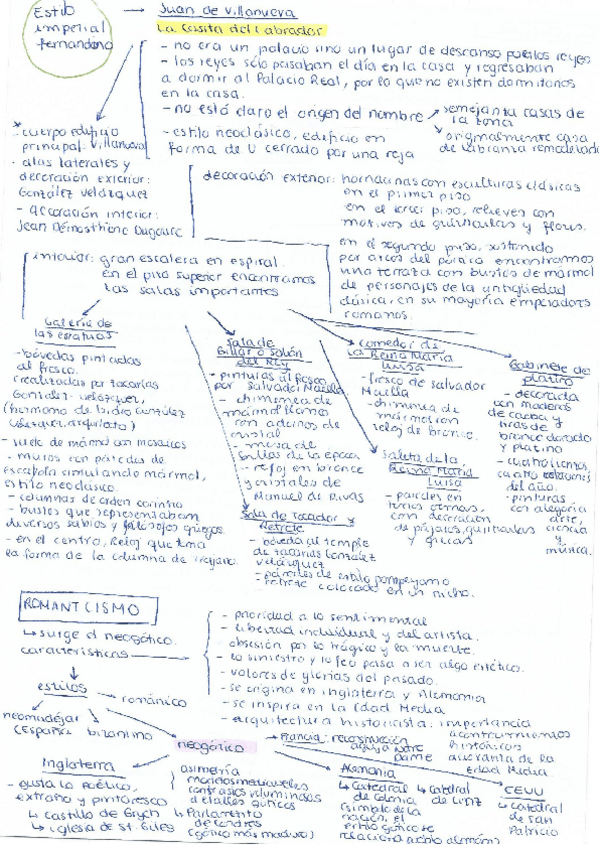 Estilo imperial fernandino
Juan de Villanueva
La casita del Labrador
- no era un palacio sino un lugar de descanso para los reyes
- los reyes sólo pasaban el día en la casa y regresaban
a dormir al Palacio Real, por lo que no existen dormitorios
en la casa.
- no está claro el origen del nombre
semejanza casas de
la zona
originalmente casa
de labranza remodelada
- estilo neoclásico, edificio en
forma de U cerrado por una reja
* cuerpo edificio
principal: Villanueva
- alas laterales y
decoración exterior:
González Velázquez
- decoración interior:
Jean Démosthène Dugourc
decoración exterior: hornacinas con esculturas clásicas
en el primer piso
en el tercer piso, relieves con
motivos de guirnaldas y flores.
en el segundo piso, sostenido
por arcos del pórtico encontramos
una terraza con bustos de mármol
de personajes de la antigüedad
clásica, en su mayoría emperadores
romanos.
interior: gran escalera en espiral.
en el piso superior encontramos
las salas importantes
Galería de
las estatuas
- bóvedas pintadas
al fresco.
realizadas por Zacarías
González Velázquez,
(hermano de Isidro González
Velázquez, arquitecto)
- suelo de mármol con mosaicos
- muros con paredes de
escayola simulando mármol,
estilo neoclásico.
- columnas de orden corintio
- bustos que representaban
diversos sabios y filósofos griegos.
- en el centro, reloj que tiene
la forma de la columna de Trajano.
Sala de
Billar o Salón
del Rey
- pinturas al fresco
por Salvador Maella
- chimenea de
mármol
con adornos de
cristal
- mesa de
billar de la época
- reloj en bronce
y cristales de
Manuel de Rivas
Sala de Tocador y
Retrete
- bóveda al temple
de Zacarías González
Velázquez
- paredes de estilo pompeyano
retrete colocado en un nicho.
Comedor de
la Reina María
Luisa
- fresco de Salvador
Maella
- chimenea de
mármol con
reloj de bronce.
Saleta de la
Reina María
Luisa
- paredes en
con decoración
de pájaros, guirnaldas
y grecas
Gabinete de
platino
- decorada
con maderas
de caoba y
tiras de
bronce dorado
y platino
- cuatro lienzos
cuatro estaciones
del año.
- pinturas
con alegoría
arte,
ciencia y
música.
ROMANTICISMO
↳ surge el neogótico.
características
- prioridad a lo sentimental
- libertad individual y del artista.
obsesión por lo trágico y la muerte.
- lo siniestro y lo feo pasa a ser algo estético.
- valores de glorias del pasado.
- se origina en Inglaterra y Alemania
- se inspira en la Edad Media
- arquitectura historicista: importancia
acontecimientos
históricos
durante la
Edad Media
estilos
románico
neomudéjar
(España)
bizantino
neogótico
Francia: reconstrucción
aguja Notre
Dame
Inglaterra
- gusta lo poético,
extraño y pintoresco
↳ castillo de
↳ iglesia de St. Giles
asimetría
modelos medievales
contrastes voluminosos
detalles góticos
↳ Parlamento
de Londres
(gótico más maduro)
Alemania
↳ catedral
de Colonia
(símbolo de la
nación, el
estilo gótico se
relaciona con lo alemán)
↳ catedral
de Linz
EEUU
↳ catedral
de San
Patricio